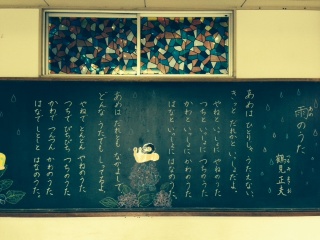 雨のうた
つるみ まさお
鶴見正夫
あめは ひとりじゃ うたえない、
きっと だれかと いっしょだよ。
やねと いっしょに やねのうた
つちと いっしょに つちのうた
かわと いっしょに かわのうた
はなと いっしょに はなのうた。
あめは だれとも なかよしで、
どんな うたでも しってるよ。
やねで とんとん やねのうた
つちで ぴちぴち つちのうた
かわで つんつん かわのうた
はなで しとしと はなのうた。